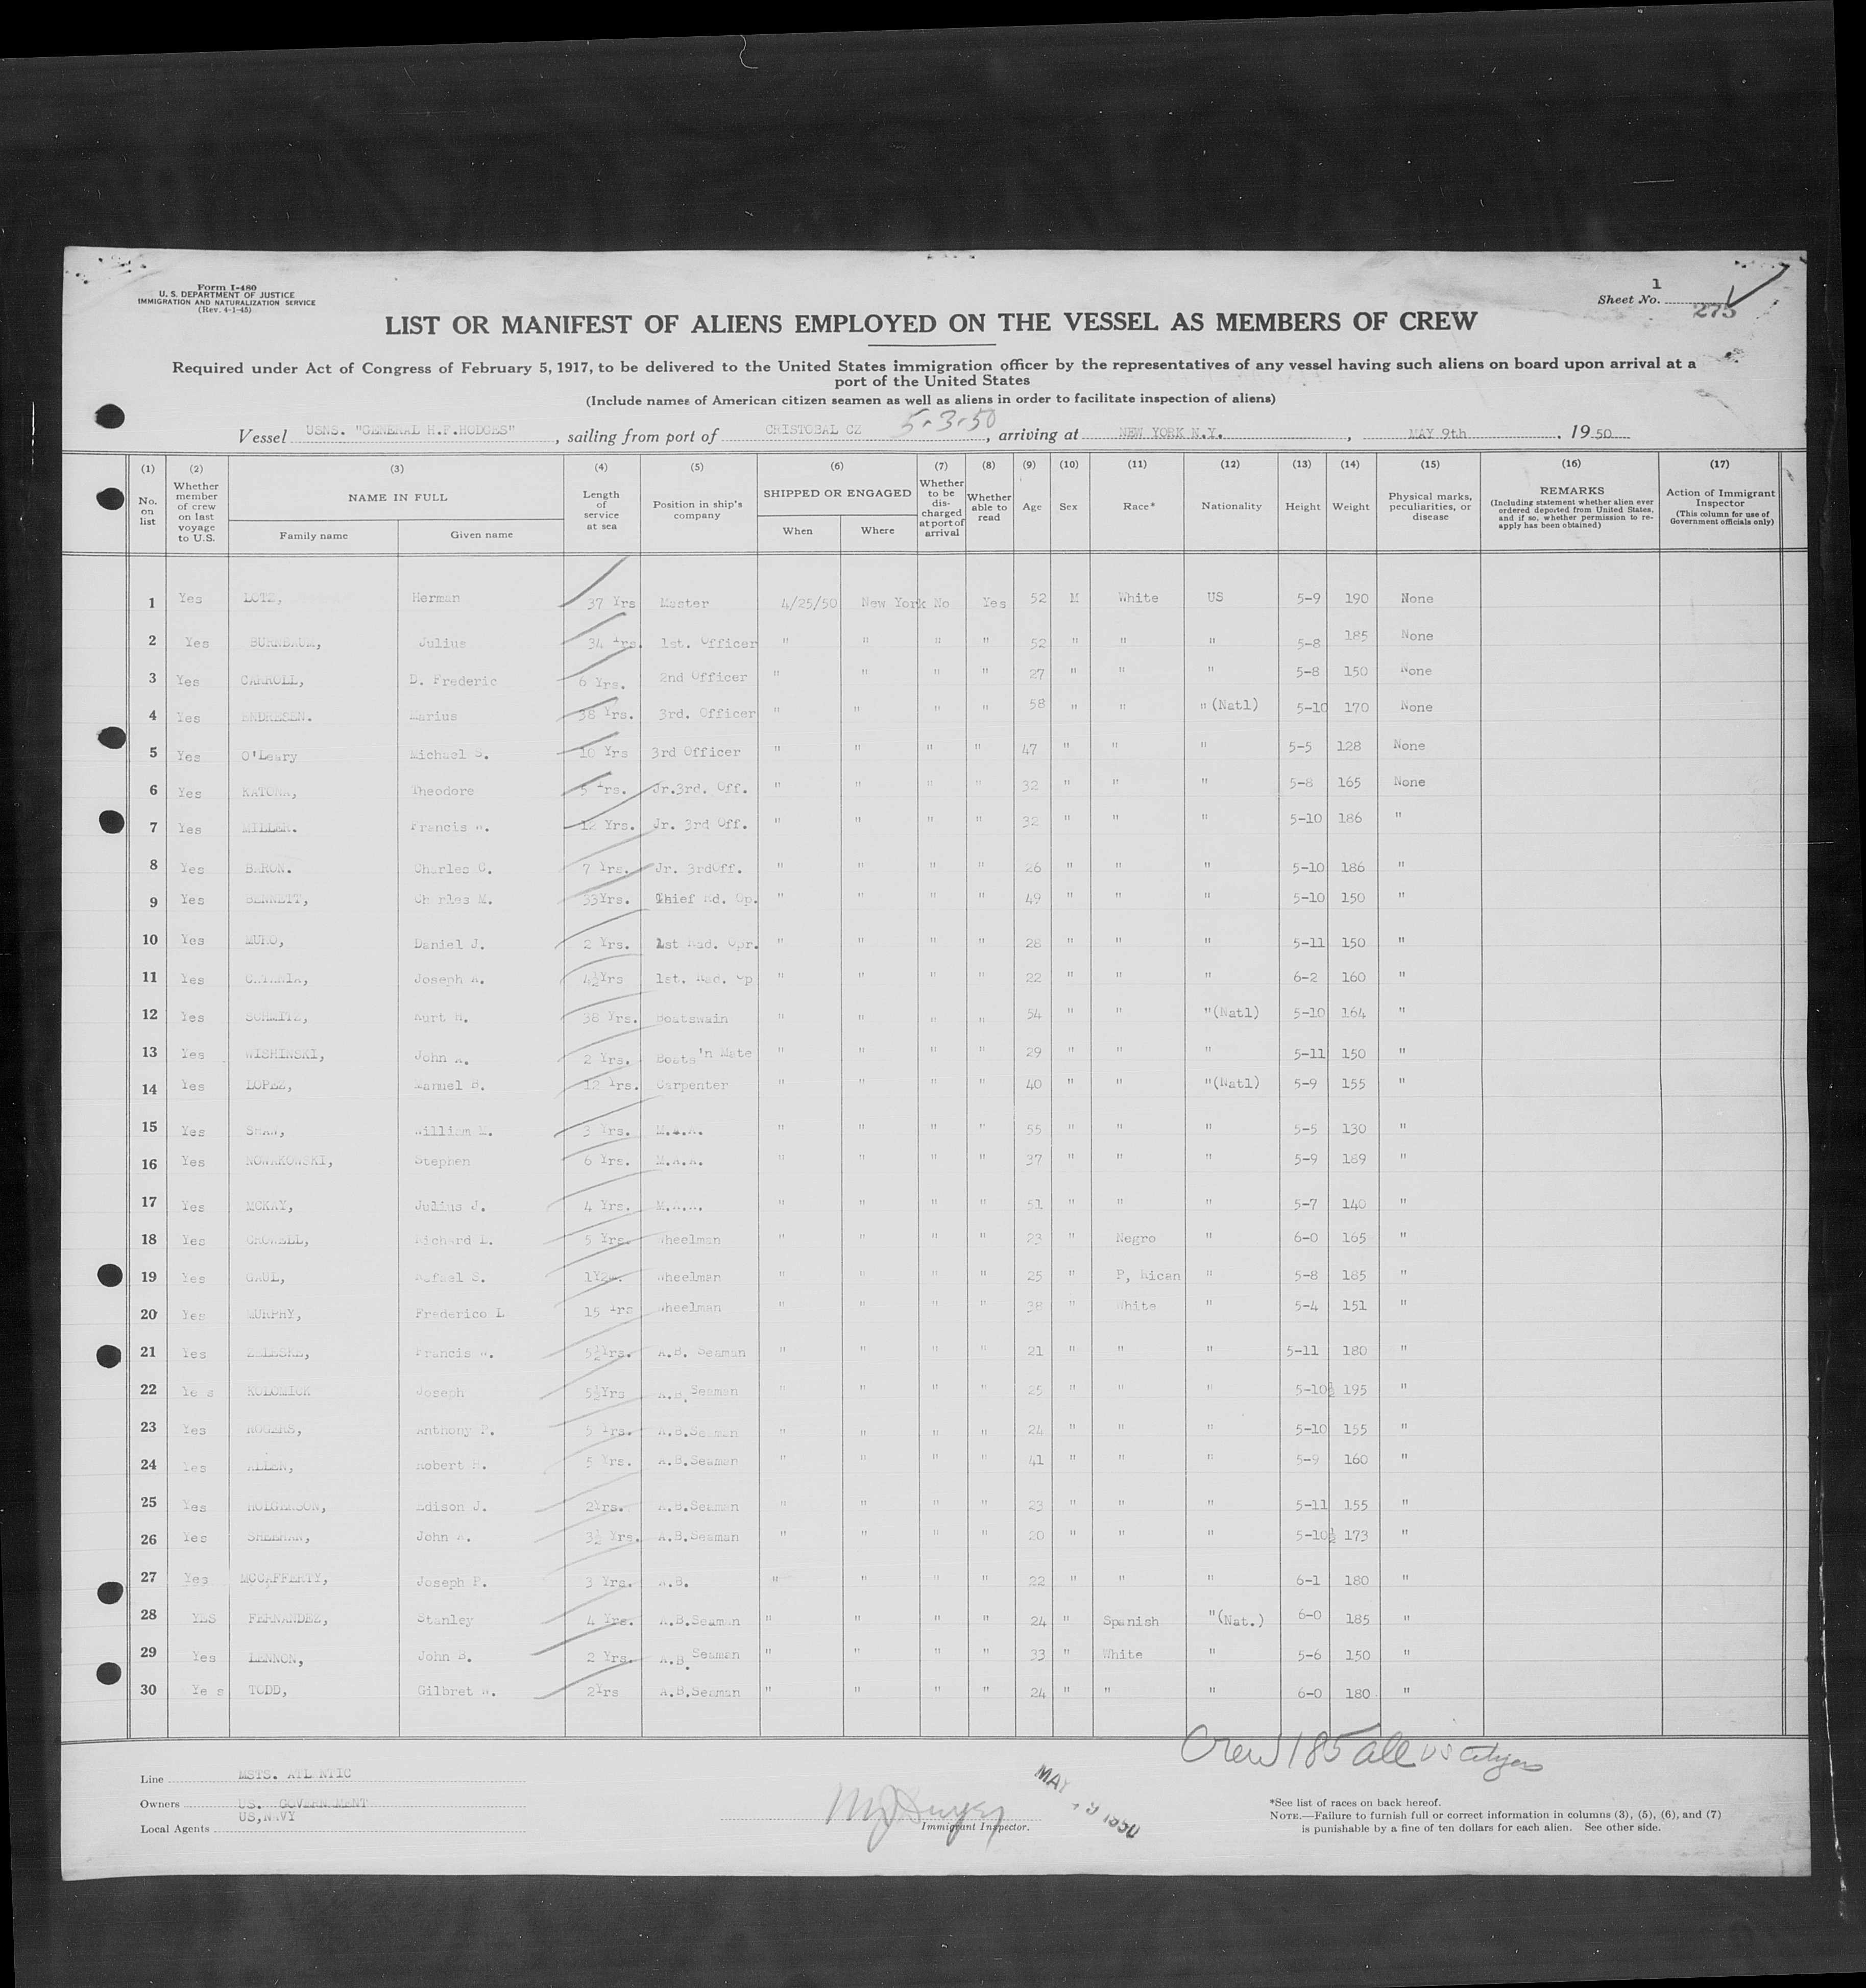 Form I-480
U. S. DEPARTMENT OF JUSTICE
IMMIGRATION AND NATURALIZATION SERVICE
(Rev. 4-1-45)
1
Sheet No.
275
LIST OR MANIFEST OF ALIENS EMPLOYED ON THE VESSEL AS MEMBERS OF CREW
Required under Act of Congress of February 5, 1917, to be delivered to the United States immigration officer by the representatives of any vessel having such aliens on board upon arrival at a
port of the United States
(Include names of American citizen seamen as well as aliens in order to facilitate inspection of aliens)
Vessel USNS. "GENERAL H.F.HODGES" , sailing from port of CRISTOBAL CZ 5-3-50 , arriving at NEW YORK N.Y. , MAY 9th , 19 50
(1) (2) (3) (4) (5) (6) (7) (8) (9) (10) (11) (12) (13) (14) (15) (16) (17)
No. on list
Whether member of crew on last voyage to U.S.
NAME IN FULL
Family name Given name
Length of service at sea
Position in ship's company
SHIPPED OR ENGAGED
When Where
Whether to be discharged at port of arrival
Whether able to read
Age Sex Race* Nationality Height Weight
Physical marks, peculiarities, or disease
REMARKS
(Including statement whether alien ever ordered deported from United States, and if so, whether permission to re-apply has been obtained)
Action of Immigrant Inspector
(This column for use of Government officials only)
1 Yes LOTZ, Herman 37 Yrs Master 4/25/50 New York No Yes 52 M White US 5-9 190 None
2 Yes BURNBAUM, Julius 34 Yrs. 1st. Officer " " " " 52 " " " 5-8 185 None
3 Yes CARROLL, D. Frederic 6 Yrs. 2nd Officer " " " " 27 " " " 5-8 150 None
4 Yes ENDRESEN. Marius 38 Yrs. 3rd. Officer " " " " 58 " " " (Natl) 5-10 170 None
5 Yes O'Leary Michael S. 10 Yrs 3rd Officer " " " " 47 " " " 5-5 128 None
6 Yes KATONA, Theodore 5 Yrs. Jr.3rd. Off. " " " " 32 " " " 5-8 165 None
7 Yes MILLER. Francis W. 12 Yrs. Jr. 3rd Off. " " " " 32 " " " 5-10 186 "
8 Yes BARON. Charles C. 7 Yrs. Jr. 3rdOff. " " " " 26 " " " 5-10 186 "
9 Yes BENNETT, Charles M. 33Yrs. Chief Rd. Op. " " " " 49 " " " 5-10 150 "
10 Yes MURO, Daniel J. 2 Yrs. 1st Rad. Opr. " " " " 28 " " " 5-11 150 "
11 Yes Joseph A. 4½Yrs 1st. Rad. Op " " " " 22 " " " 6-2 160 "
12 Yes SCHMITZ, Kurt H. 38 Yrs. Boatswain " " " " 54 " " "(Natl) 5-10 164 "
13 Yes WISHINSKI, John A. 2 Yrs. Boats'n Mate " " " " 29 " " " 5-11 150 "
14 Yes LOPEZ, Manuel B. 12 Yrs. Carpenter " " " " 40 " " "(Natl) 5-9 155 "
15 Yes SHAW, William 3 Yrs. M.A.A. " " " " 55 " " " 5-5 130 "
16 Yes NOWAKOWSKI, Stephen 6 Yrs. M.A.A. " " " " 37 " " " 5-9 189 "
17 Yes MCKAY, Julius J. 4 Yrs. M.A.A. " " " " 51 " " " 5-7 140 "
18 Yes CROWELL, Richard L. 5 Yrs. Wheelman " " " " 23 " Negro " 6-0 165 "
19 Yes GAUL, Rafael S. Wheelman " " " " 25 " P, Rican " 5-8 185 "
20 Yes MURPHY, Frederico L 15 Yrs Wheelman " " " " 38 " White " 5-4 151 "
21 Yes ZELESKE, Francis W. 5½Yrs. A.B. Seaman " " " " 21 " " " 5-11 180 "
22 Yes KOLOMICK Joseph 5½Yrs A.B. Seaman " " " " 25 " " " 5-10½ 195 "
23 Yes ROGERS, Anthony P. 5 Yrs. A.B.Seaman " " " " 24 " " " 5-10 155 "
24 Yes ALLEN, Robert H. 5 Yrs. A.B.Seaman " " " " 41 " " " 5-9 160 "
25 Yes HOLGERSON, Edison J. 2Yrs. A.B.Seaman " " " " 23 " " " 5-11 155 "
26 Yes SHEEHAN, John A. 3½ Yrs. A.B.Seaman " " " " 20 " " " 5-10½ 173 "
27 Yes MCCAFFERTY, Joseph P. 3 Yrs. A.B. " " " " 22 " " " 6-1 180 "
28 YES FERNANDEZ, Stanley 4 Yrs. A.B.Seaman " " " " 24 " Spanish "(Nat.) 6-0 185 "
29 Yes LENNON, John B. 2 Yrs. A.B. Seaman " " " " 33 " White " 5-6 150 "
30 Yes TODD, Gilbret W. 2Yrs A.B.Seaman " " " " 24 " " " 6-0 180 "
Crew 185 all US Citizens
Line MSTS. ATLANTIC
Owners US. GOVERNMENT
US,NAVY
Local Agents
MAY 9 1950
Immigrant Inspector.
*See list of races on back hereof.
NOTE.—Failure to furnish full or correct information in columns (3), (5), (6), and (7)
is punishable by a fine of ten dollars for each alien. See other side.